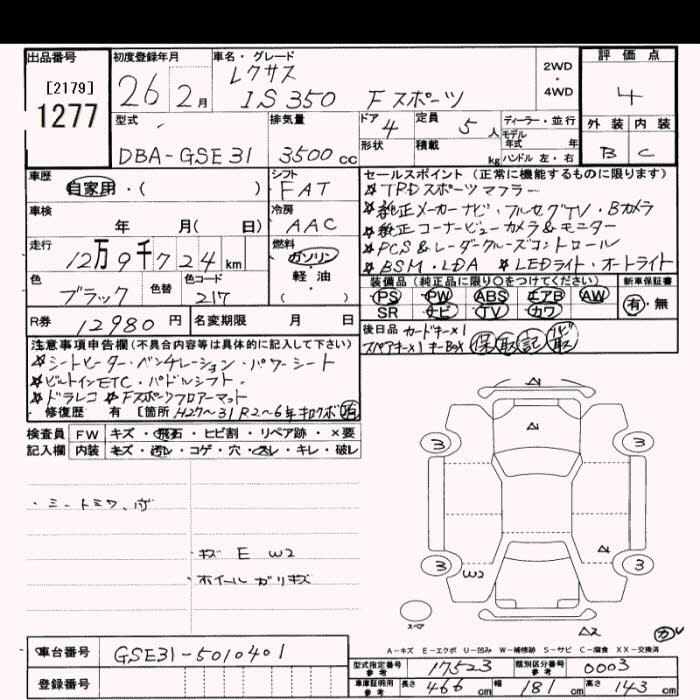 出品番号 初度登録年月 車名・グレード 評価点
[2179]
1277
26 2月
レクサス
IS350 Fスポーツ
2WD
・
4WD
4
型式 排気量 ドア 定員 ディーラー・並行 外装 内装
DBA-GSE31 3500cc 4 5人 モデル年式 年
形状 積載 kg ハンドル 左・右 B C
車歴 シフト セールスポイント (正常に機能するものに限ります)
自家用・( ) FAT
☆TRDスポーツマフラー
車検 冷房
年 月( 日) AAC
☆純正メーカーナビ・フルセグTV・Bカメラ
☆純正コーナービューカメラ&モニター
走行 燃料
12万9千724km ガソリン・軽油・( )
☆PCS&レーダークルーズコントロール
☆BSM・LDA ☆LEDライト・オートライト
色 色替 色コード
ブラック 217
装備品(純正品に限り○をつけてください) 新車保証書
PS PW ABS エアB AW 有・無
SR ナビ TV カワ
R券 12980円 名変期限 月 日
後日品 カードキー×1
スペアキー×1 キーBox 保 取 記
注意事項申告欄(不具合内容等は具体的に記入して下さい)
☆シートヒーター・ベンチレーション・パワーシート
☆ビルトインETC・パドルシフト・
☆ドラレコ ☆Fスポーツフロアーマット
修復歴 有 [箇所 H27〜31 R2〜6年キロクボ
検査員 FW キズ・飛石・ヒビ割・リペア跡・×要
記入欄 内装 キズ・汚レ・コゲ・穴・スレ・キレ・破レ
・シートシワ、
・キズ E W2
・ホイールガリキズ
A1
A1
3 3
A1
3 3
W2
スペア
A2
A-キズ E-エクボ U-凹み W-補修跡 S-サビ C-腐食 XX-交換済
車台番号 GSE31-5010401
登録番号
型式指定番号 参考 17523 類別区分番号 参考 0003
車庫証明用 参考 長さ 466cm 幅 181cm 高さ 143cm